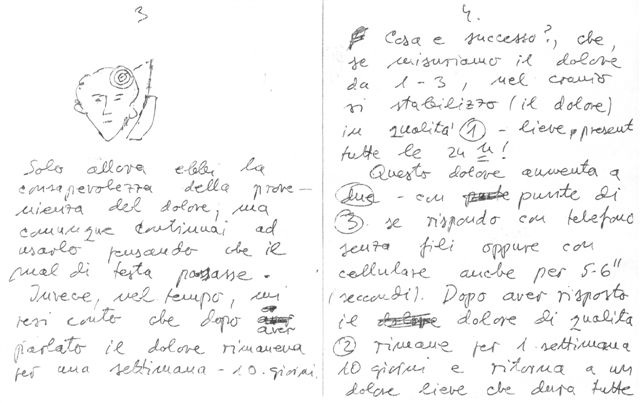 3
Solo allora ebbi la
consapevolezza della prove-
nienza del dolore, ma
comunque continuai ad
usarlo pensando che il
mal di testa passasse.
Invece, nel tempo, mi
resi conto che dopo
aver
parlato il dolore rimaneva
per una settimana - 10 giorni.
4.
Cosa e successo?, che,
se misuriamo il dolore
da 1-3, nel cranio
si stabilizzo (il dolore)
in qualità 1 - lieve, present
tutte le 24 h!
Questo dolore aumenta a
due - con punte di
3 se rispondo con telefono
senza fili oppure con
cellulare anche per 5-6"
(secondi). Dopo aver risposto
il dolore di qualita
2 rimane per 1 settimana
10 giorni e ritorna a un
dolore lieve che dura tutte